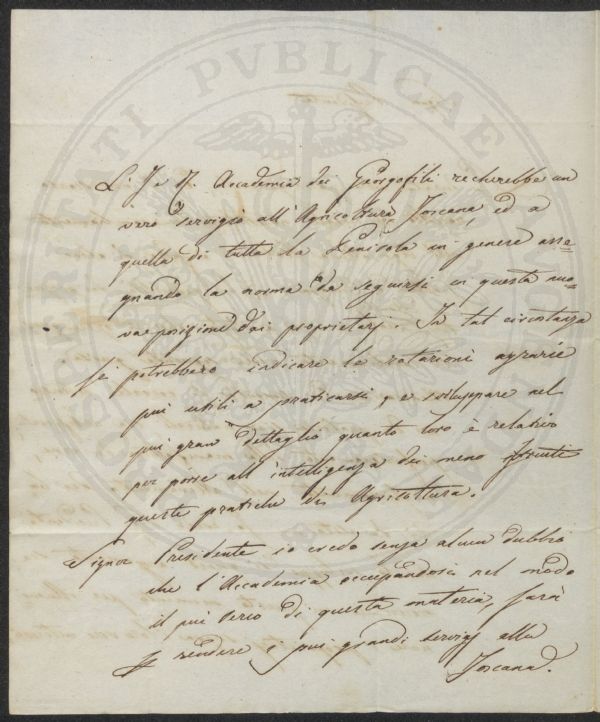 PROSPERITATI PVBLICAE
L'I. e R. Accademia dei Georgofili recherebbe un
vero servigio all'Agricoltura Toscana, ed a
quella di tutta la Penisola in genere asse=
gnando la norma da seguirsi in questa nuo=
va posizione dai proprietarj. In tal circostanza
si potrebbero indicare le rotazioni agrarie
piu utili a praticarsi, e sviluppare nel
piu gran dettaglio quanto loro è relativo
per porre all'intelligenza dei meno
queste pratiche di Agricoltura.
Signor Presidente io credo senza alcun dubbio
che l'Accademia occupandosi nel modo
il piu serio di questa materia, sarà
rendere i piu grandi servigj alla
Toscana.